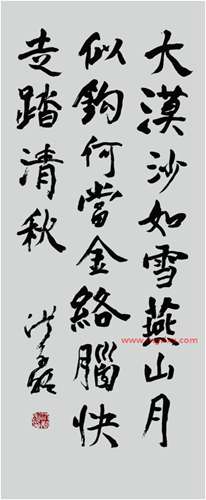 大漠沙如雪燕山月
似鈎何當金絡腦快
走踏清秋